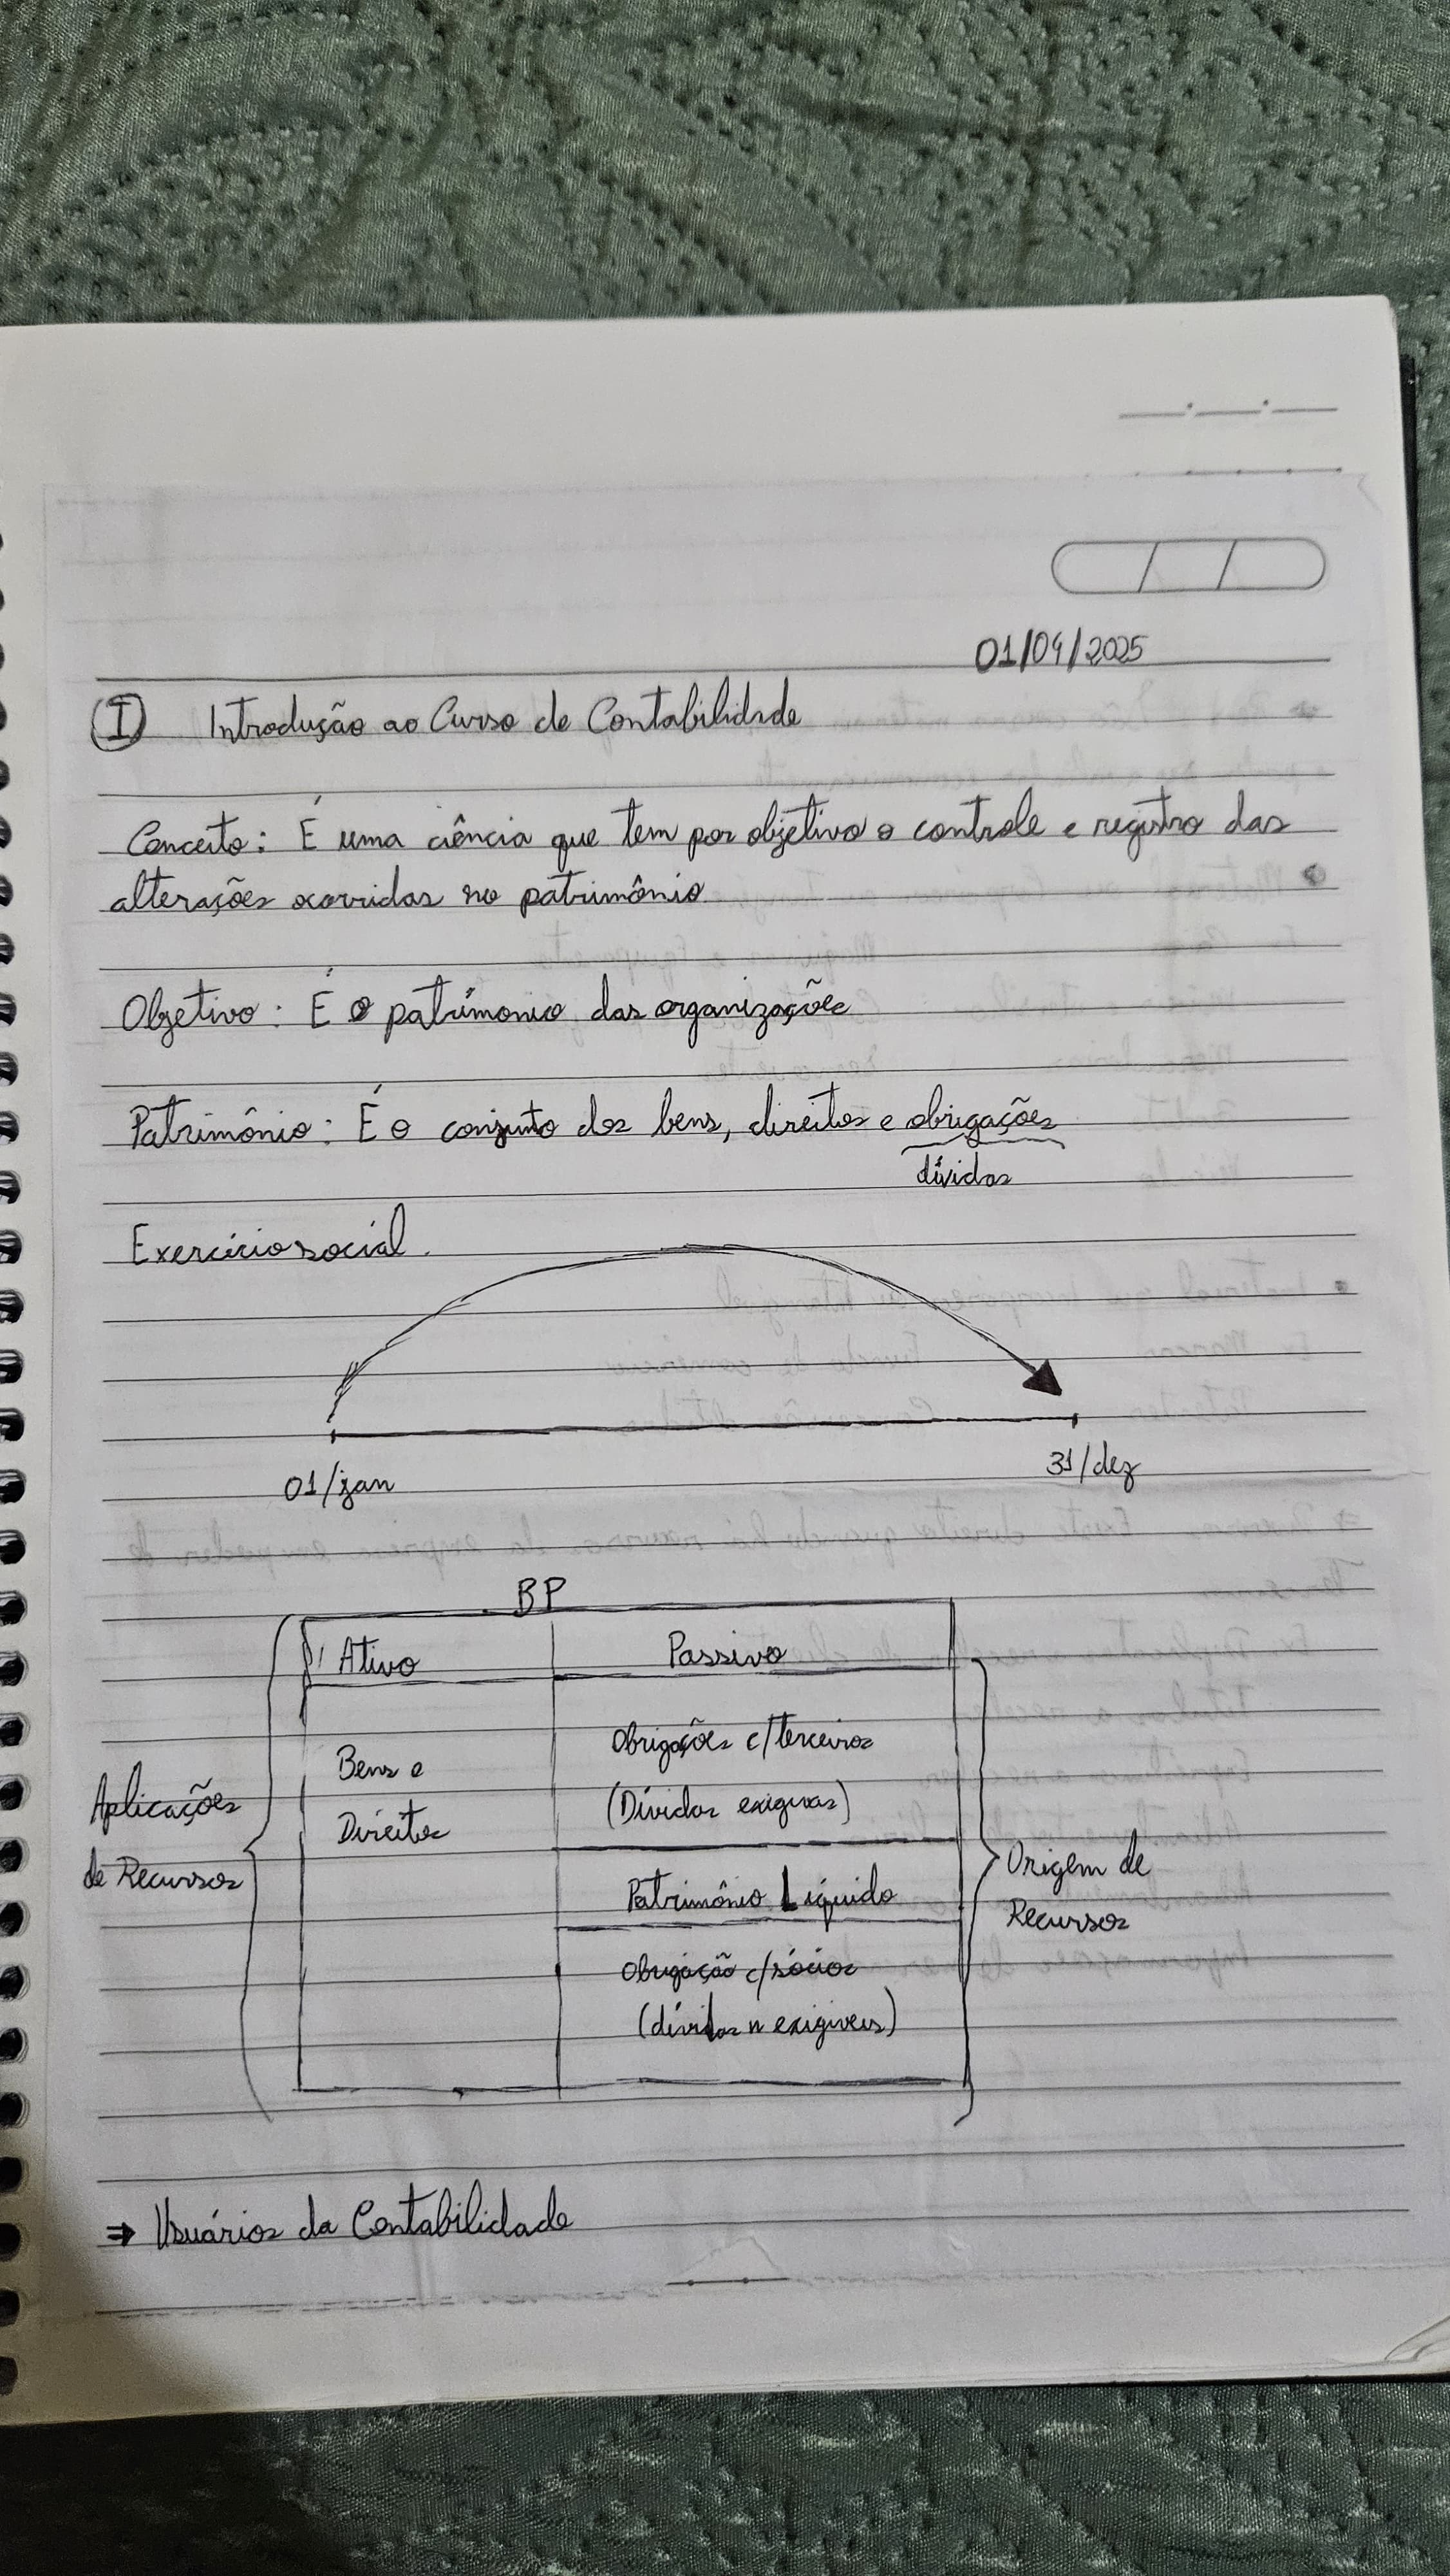 01/04/2025
I Introdução ao Curso de Contabilidade
Conceito: É uma ciência que tem por objetivo o controle e registro das
alterações ocorridas no patrimônio
Objetivo: É o patrímonio das organizações
Patrimônio: É o conjunto dos bens, direitos e obrigações
dívidas
Exercício social.
01/jan
31/dez
BP
Ativo Passivo
Obrigações c/terceiros
Bens e
(Dívidas exigivas)
Direitos
Aplicações
de Recursos
Patrimônio Líquido
Obrigação c/sócios
(dívidas ñ exigíveis)
Origem de
Recursos
⇒ Usuários da Contabilidade